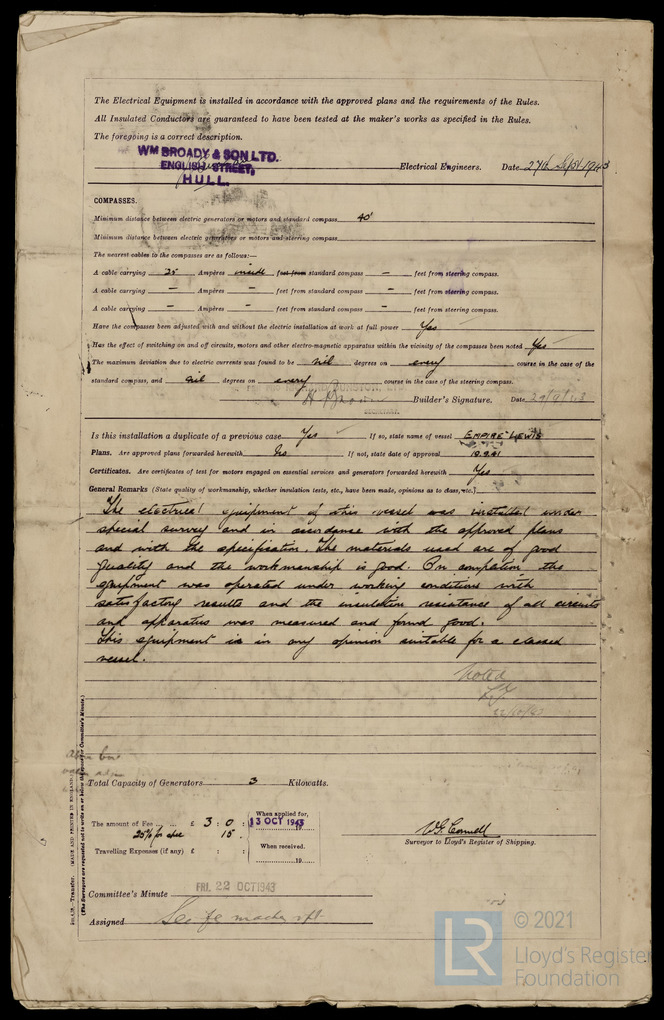 The Electrical Equipment is installed in accordance with the approved plans and the requirements of the Rules.
All Insulated Conductors are guaranteed to have been tested at the maker's works as specified in the Rules.
The foregoing is a correct description.
WM BROADY & SON LTD.
ENGLISH STREET,
HULL.
Electrical Engineers. Date 27th Sept 1943
COMPASSES.
Minimum distance between electric generators or motors and standard compass 40'
Minimum distance between electric generators or motors and steering compass
The nearest cables to the compasses are as follows:—
A cable carrying .25 Ampères inside feet from standard compass — feet from steering compass.
A cable carrying — Ampères — feet from standard compass — feet from steering compass.
A cable carrying — Ampères — feet from standard compass — feet from steering compass.
Have the compasses been adjusted with and without the electric installation at work at full power Yes
Has the effect of switching on and off circuits, motors and other electro-magnetic apparatus within the vicinity of the compasses been noted Yes
The maximum deviation due to electric currents was found to be nil degrees on every course in the case of the
standard compass, and nil degrees on every course in the case of the steering compass.
Builder's Signature. Date 29/9/43
Is this installation a duplicate of a previous case Yes If so, state name of vessel "EMPIRE LEWIS"
Plans. Are approved plans forwarded herewith No If not, state date of approval 10.9.41
Certificates. Are certificates of test for motors engaged on essential services and generators forwarded herewith Yes
General Remarks (State quality of workmanship, whether insulation tests, etc., have been made, opinions as to class, etc.)
The electrical equipment of this vessel was installed under
special survey and in accordance with the approved plans
and with the specification. The materials used are of good
quality and the workmanship is good. On completion the
equipment was operated under working conditions with
satisfactory results and the insulation resistance of all circuits
and apparatus was measured and found good.
This equipment is in my opinion suitable for a classed
vessel.
Noted
22/10/43
Total Capacity of Generators 3 Kilowatts.
The amount of Fee £ 3 : 0 :
When applied for,
13 OCT 1943
25% for
15
Travelling Expenses (if any) £ : :
When received.
19
Surveyor to Lloyd's Register of Shipping.
Committee's Minute FRI. 22 OCT 1943
Assigned See
Transfer. (MADE AND PRINTED IN ENGLAND.)
(The Surveyors are requested not to write on or below the space for Committee's Minute.)
LR
© 2021
Lloyd's Register
Foundation